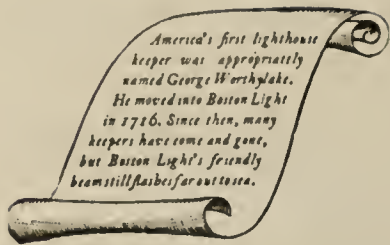 America's first lighthouse
keeper was appropriately
named George Worthylake.
He moved into Boston Light
in 1716. Since then, many
keepers have come and gone,
but Boston Light's friendly
beam still flashes far out to sea.